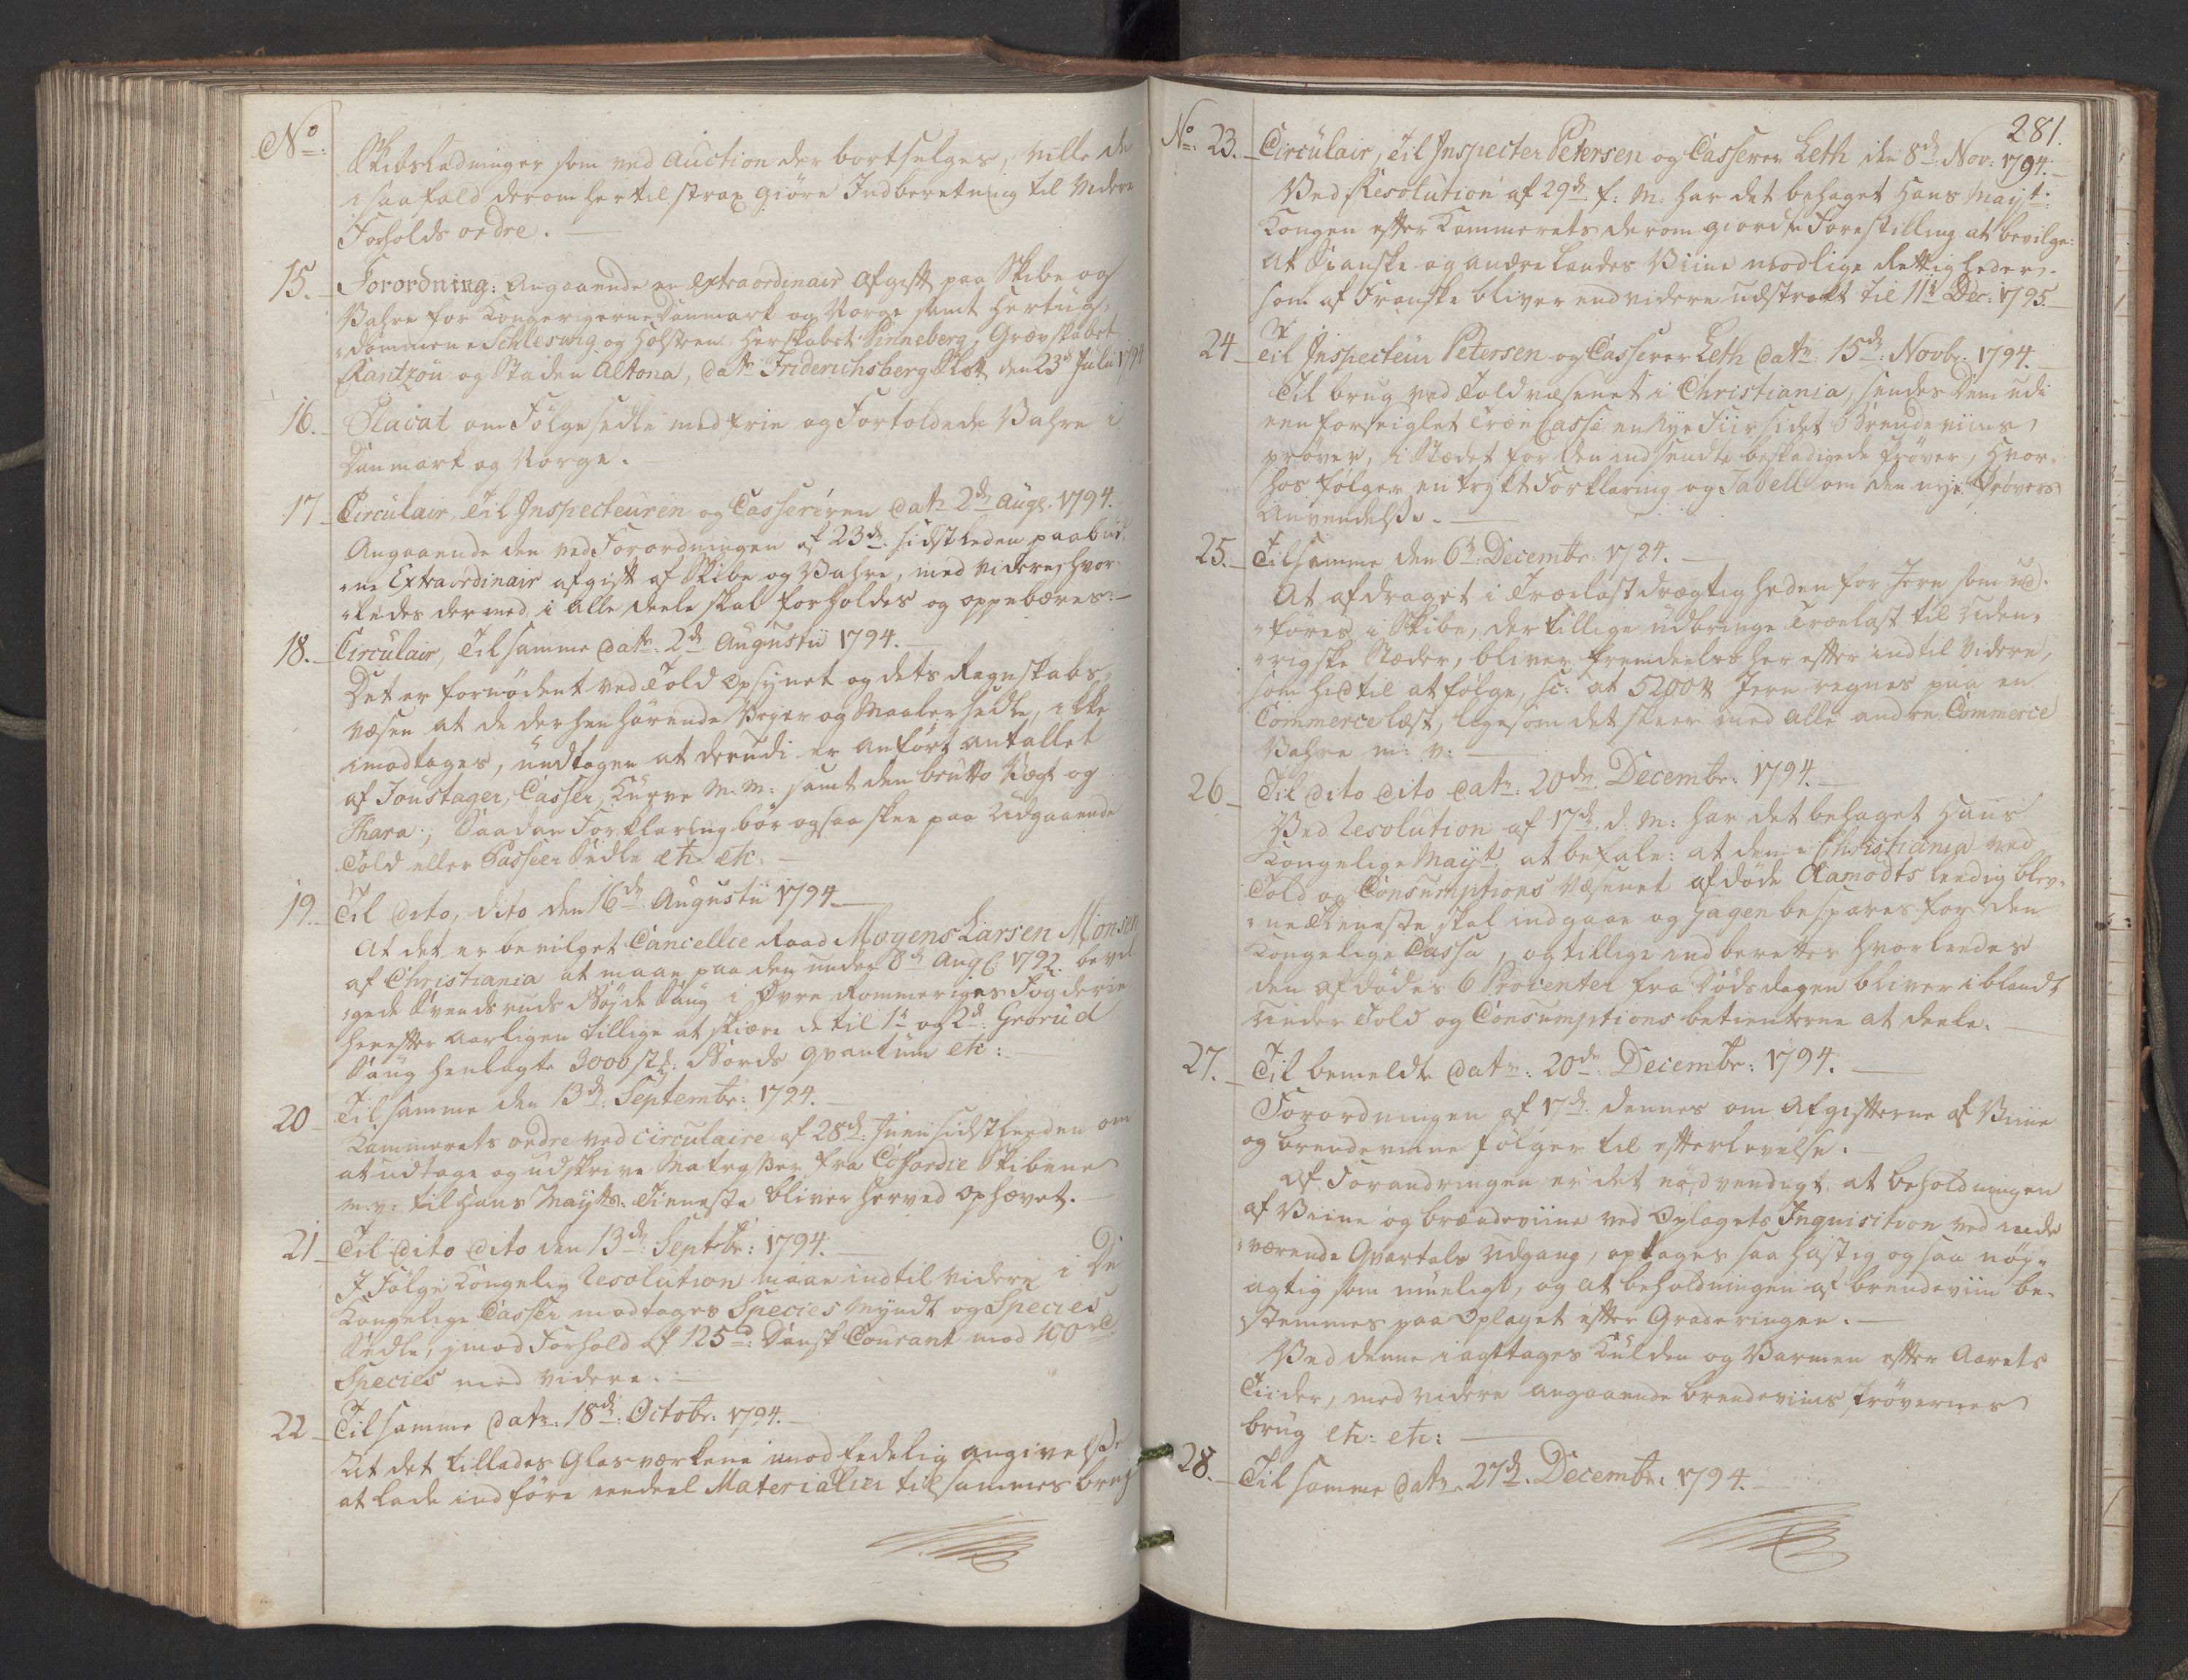 No:
Skibsladninger som ved Auction der bortselges, ville De
i saa fald derom hertil strax giøre Indberetning til Videre
Forholds ordre.
15. Forordning: Angaaende en extraordinair Afgift paa Skibe og
Vahre for Kongerigerne Danmark og Norge samt Hertug-
dømmene Schleswig og Holsteen Herskabet Pinneberg, Grævskabet
Rantzou og Staden Altona, dat: Friderichsberg Slot den 23d Julii 1794
16. Placat om Følgesedle med frie og Fortoldede Vahre i
Danmark og Norge.
17 Circulair, Til Inspecteuren og Casserèren dat: 2d Aug: 1794.
Angaaende den ved Forordningen af 23d: sidstleden paabud-
ne Extraordinair afgift af Skibe og Vahre, med Videre hvor-
ledes dermed i alle deele skal forholdes og oppebæres.
18. Circulair, Til samme dat: 2d Augustii 1794.
Det er fornødent ved Told Opsynet og dets Regnskabs-
væsen at de derhen hørende Vejer og Maaler Sedle, ikke
imodtages, undtagen at derudi er anført antallet
af Foustager, Casser, Kurve m: m: samt den brutto Vægt og
Thara; Saadan Forklaring bør ogsaa skee paa Udgaaende
Told eller Passeer Sedle etc. etc:
19. Til dito, dito den 16d Augustii 1794
At det er bevilget Cancellie Raad Mogens Larsen Monsen
af Christiania at maae paa den under 8d Aug: 1792 bevil-
gede Svendsruds Bøjde Saug i Øvre Rommeriges Fogderie
herefter aarligen tillige at skiære de til 1ste og 2d: Grorud
Saug henlagte 3000 st: Bords qvantum etc:
20 Til samme den 13d: Septembr: 1794.
Kammerets ordre ved circulaire af 28d: Junii sidstleeden om
at udtage og udskrive Matrosser fra Coffardie Skibene
m: v: til Hans Mayts: Tieneste bliver herved Ophævet.
21 Til dito dito den 13d: Septbr: 1794.
I Følge Kongelig Resolution maae indtil videre i De
Kongelige Casser modtages Species Myndt og Species
Sedle, imod Forhold af 125 rd: Dansk Courant mod 100 rd
Species med videre.
22 Til samme dat: 18d: Octobr: 1794.
At det tillades Glasværkene imod Edelig angivelse
at lade indføre eendeel Materialier til sammes brug
281.
No: 23. Circulair, Til Inspecter Petersen og Casserer Leth den 8d: Nov: 1794.
Ved Resolution af 29d f: M: har det behaget Hans Mayt:
Kongen efter Kammerets derom giordte Forestilling at bevilge:
At Spanske og andre Landes Viine modlige Rettigheder
som af Franske bliver endvidere udstrakt til 11te Dec: 1795.
24 Til Inspecteur Petersen og Casserer Leth dat: 15d: Novbr: 1794.
Til brug ved Toldvæsenet i Christiania, sendes Dem udi
een forseiglet Træe Cassa en Nye Fiirsidet Brendeviins
prøver, i Stædet for den indsendte beskadigede Prøver, Hvor-
hos følger en trykt Forklaring og Tabell om den nye Prøvers
Anvendelse.
25. Til samme den 6te Decembr: 1794.
At afdraget i Trælast drægtigheden for Jern som ud-
føres i Skibe, der tillige udbringe Trælast til Uden-
rigske Stæder, bliver fremdeeles her efter indtil Videre,
som hidtil at følge, sc: at 5200 ℔ Jern regnes paa en
Commerce læst, ligesom det skeer med alle andre Commerce
Vahre m: v:
26 Til dito dito dat: 20de Decembr: 1794.
Ved Resolution af 17d: d: M: har det behaget Hans
Kongelige Mayt: at befale: at den i Christiania ved
Told og Consumptions Væsenet afdøde Aamodts leedig blev-
ne Tieneste skal indgaae og Gagen bespares for den
Kongelige Cassa, og tillige indberettes hvorleedes
den afdødes 6 Procenter fra Dødsdagen bliver i blandt
under Told og Consumptions betienterne at deele.
27. Til bemeldte dat: 20de Decembr: 1794.
Forordningen af 17d: dennes om Afgifterne af Viine
og brendeviine følger til efterlevelse.
Af Forandringen er det nødvendigt at beholdningen
af Viine og brændeviine ved Oplagets Inquisition ved inde
værende Qvartals Udgang, optages saa hastig og saa nøy-
agtig som mueligt, og at beholdningen af brendeviin be-
stemmes paa Oplaget efter Graderingen.
Ved denne iagttages Kulden og Varmen efter Aarets
Tiider, med videre angaaende brendeviins prøvernes
brug etc: etc:
28. Til samme dat: 27d: Decembr: 1794.